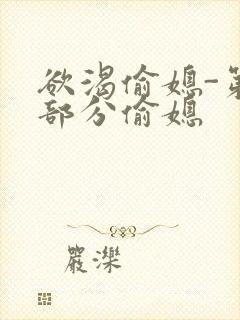 欲渴偷媳-第
部分偷媳
嚴濼